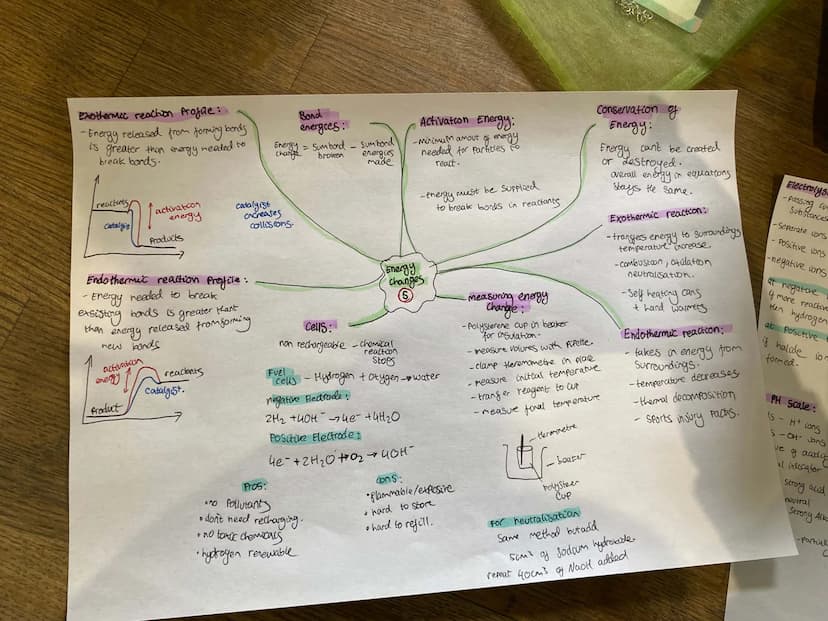 Exothermic reaction Profile:
- Energy released from forming bonds
is greater than energy needed to
break bonds.
reactants
activation
energy
catalyst
Products
catalyst
increases
collisions.
Endothermic reaction Profile:
- Energy needed to break
exsisting bonds is greater than
than energy released from forming
new bonds
activation
energy
reactants
catalyst.
Product
Bond
energies:
Energy = sum bond - sum bond
change broken energies
made.
Activation Energy:
- minimum amout of energy
needed for particles to
react.
- energy must be supplied
to break bonds in reactants
Conservation of
Energy:
Energy cant be created
or destroyed.
overall energy in equations
stays the same.
Exothermic reaction:
- transfers energy to surroundings
temperature increase.
- combustion, oxidation
neutralisation.
- Self heating cans
+ hand warmers
Endothermic reaction:
- takes in energy from
Surroundings.
- temperature decreases
- thermal decomposition
- Sports injury packs.
Energy
changes
5
Measuring energy
change:
- Polysterene cup in beaker
for insulation.
- measure volumes with pipette.
- clamp thermometre in place
- measure initial temperature
- transfer reagent to cup
- measure final temperature
thermometre
beaker
Polysteer
cup
For neutralisation
Same method but add
5cm³ of Sodium hydroxide
repeat 40cm³ of NaOH added
Cells:
non rechargeable - chemical
reaction
stops
Fuel
cells - Hydrogen + Oxygen → water
negative Electrode:
2H₂ + 4OH⁻ → 4e⁻ + 4H₂O
Positive Electrode:
4e⁻ + 2H₂O + O₂ → 4OH⁻
Pros:
• no Pollutants
• don't need recharging.
• no toxic chemicals
• hydrogen renewable
Cons:
• flammable/explosive
• hard to store
• hard to refill.
Electrolys
- Passing cu
Substances
- Separate ions
- Positive ions
- negative ions
at negative
if more reactive
then hydrogen
at Positive
if halide ion
formed.
PH Scale:
- H⁺ ions
- OH⁻ ions
strong acid
neutral
Strong Alk